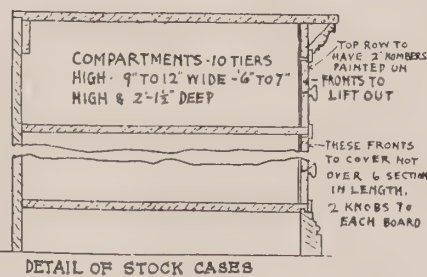 COMPARTMENTS - 10 TIERS
HIGH - 9" TO 12" WIDE - 6" TO 7"
HIGH & 2'-1½" DEEP
TOP ROW TO
HAVE 2" NUMBERS
PAINTED ON
FRONTS TO
LIFT OUT
THESE FRONTS
TO COVER NOT
OVER 6 SECTION
IN LENGTH.
2 KNOBS TO
EACH BOARD
DETAIL OF STOCK CASES